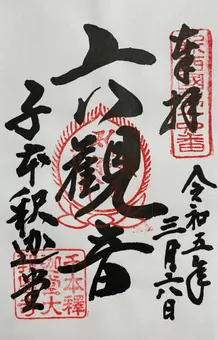 奉拝
令和五年
三月六日
六観音
千本釈迦堂
千本釋
迦堂大